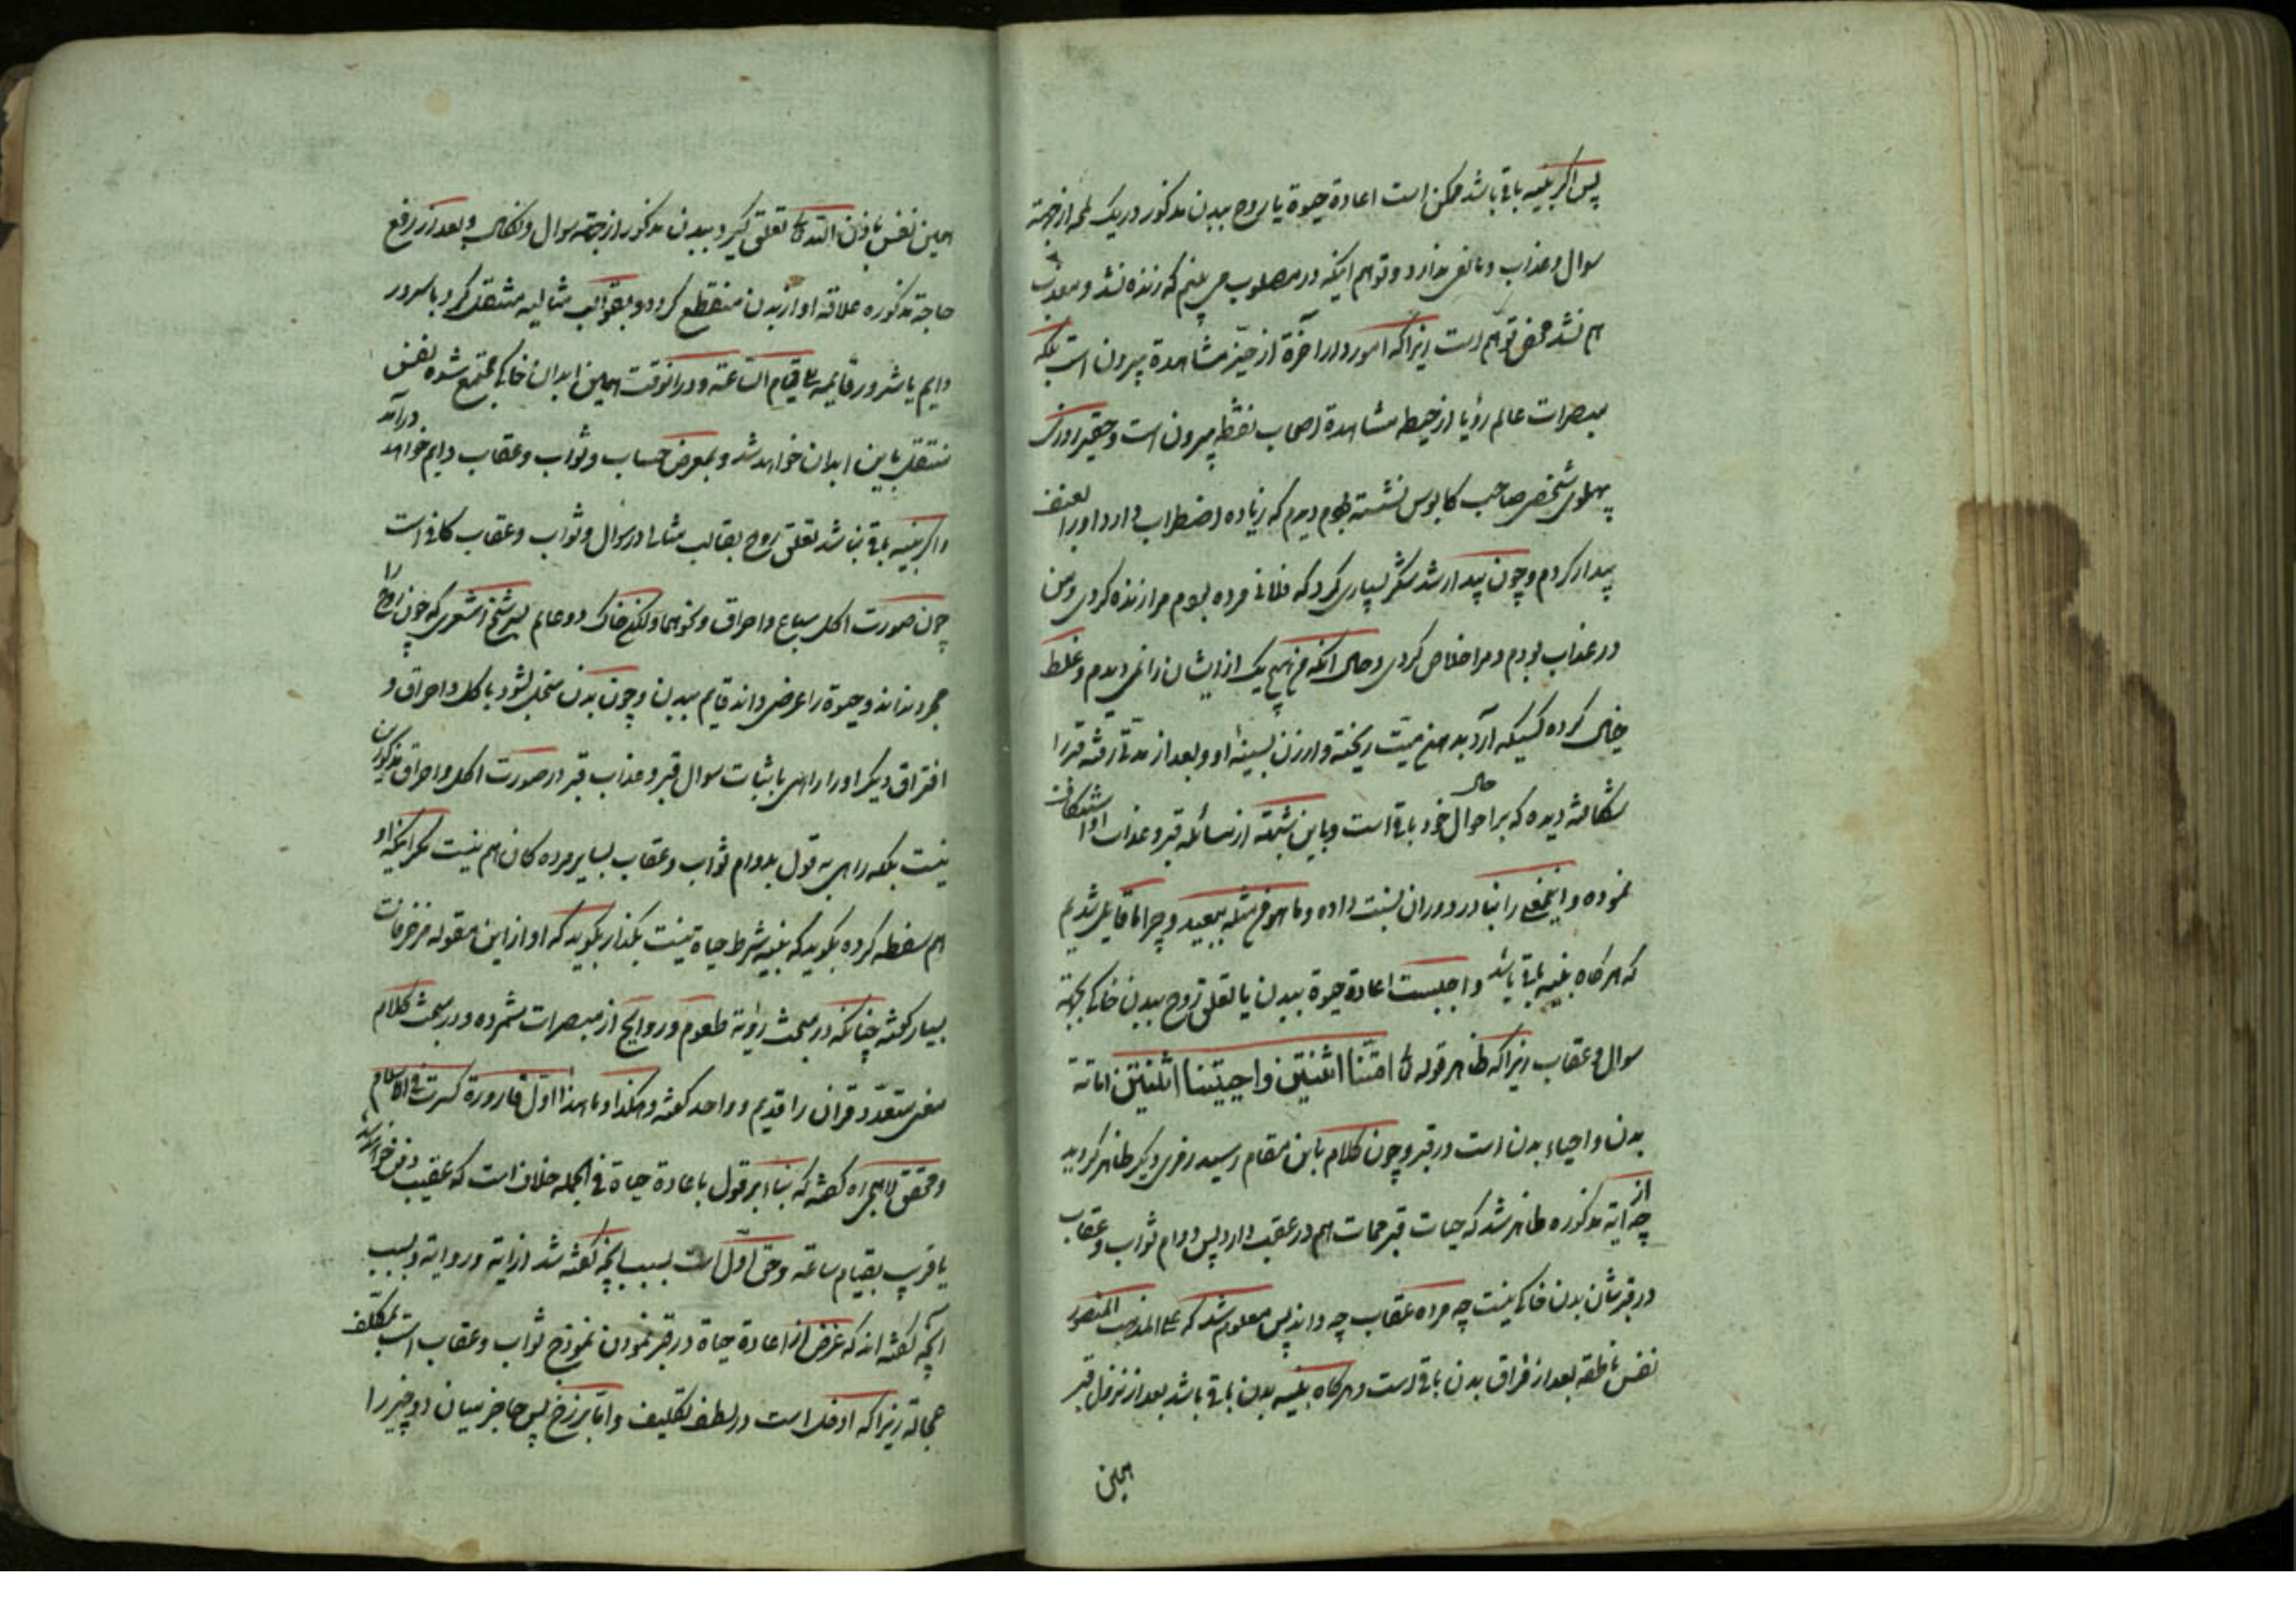 پس اگر بنیه باقی باشد ممکن است اعادۀ حیوة یا روح ببدن مذکور در یک لمحه از جهته
سوال و عذاب و مانعی ندارد و توهم اینکه در مصلوب می بینم که زنده نشد و معذب
هم نشد محض توهم است زیرا که امور دار آخرة از حیّز مشاهدة بیرون است بلکه
مبصرات عالم رؤیا از حیطه مشاهدة اصحاب یقظه بیرون است و حقیر روزی
پهلوی شخصی صاحب کابوس نشسته بودم دیدم که زیاده اضطراب دارد او را بعنف
بیدار کردم و چون بیدار شد شکر بسیاری کرد که فلانی مرده بودم مرا زنده کردی و من
در عذاب بودم و مرا خلاص کردی و حال آنکه من هیچ یک از ایشان را نمی دیدم و غلط
خیالی کرده کسیکه آرد بدهن میّت ریخته و ارزن بسینۀ او و بعد از مدتی رفته قبر را
شکافته دیده که بر احوال خود باقی است و باین شبهته از مسائله قبر و عذاب او استنکاف
نموده و اینمعنی را بنادر دوران نسبت داده و ما هو من مثله ببعید و چرا ما قایل شدیم
که هر گاه بنیه باقی باشد واجبست اعادۀ حیوة ببدن یا تعلق روح ببدن خاکی بجهته
سوال و عقاب زیرا که ظاهر قوله تعالی امتّنا اثنتین و احییتنا اثنتین اماته
بدن و احیاء بدن است در قبر و چون کلام باین مقام رسید رمزی دیگر ظاهر گردید
چه از ایته مذکوره ظاهر شد که حیات قبر ممات هم در عقب دارد پس دوام ثواب و عقاب
در قبر شان بدن خاکی نیست چه مرده عقاب چه داند پس معلوم شد که علی المذهب المنصور
نفس ناطقه بعد از فراق بدن باقی است و هر گاه بنیه بدن باقی باشد بعد از نزول قبر
همین
همین نفس باذن الله تعالی تعلق گیرد ببدن مذکور از جهته سوال و بعد از رفع
حاجة مذکوره علاقه او از بدن منقطع گردد و بقوالب مثالیه منتقل گردد با سرور
دایم یا شرور قایمه تا قیام الساعته و در آنوقت همین ابدان خاکی مجتمع شده نفس
منتقل باین ابدان خواهد شد و بمعرض حساب و ثواب و عقاب دایم خواهد درآمد
و اگر بنیه باقی نباشد تعلق روح بقالب مثالی در سوال و ثواب و عقاب کافی است
چون صورت اکل سباع و احراق و نحوهما و لکن خاک دو عالم بسر شیخ اشعری که چون روح را
مجرد نداند و حیوة را عرضی داند قایم ببدن و چون بدن منحل شود باکل و احراق و
افتراق دیگر او را راهی باثبات سوال قبر و عذاب قبر در صورت اکل و احراق مذکورین
نیست بلکه راهی به قول بدوام ثواب و عقاب بسایر مرده کان هم نیست مگر اینکه او
هم سفطه کرده بگوید که بنیه شرط حیاة نیست بگذار بگوید که او از این مقوله مزخرفات
بسیار گفته چنانکه در مبحث رؤیة طعوم و روایح از مبصرات شمرده و در مبحث کلام
معنی متعدد قران را قدیم و واحد گفته و هکذا و ما هذا اول قارورة کسرت فی الاسلام
و محقق لاهیجی ره گفته که بناء بر قول باعادة حیاة فی الجمله خلاف است که عقیب دفن خواهد شد
یا قریب بقیام ساعته و حق اوّل است بسبب آنچه گفته شد از ایته و روایته و بسبب
آنچه گفته اند که غرض از اعادة حیاة در قبر نمودن نموذج ثواب و عقاب است بمکلّف
عجالة زیرا که ادخل است در لطف تکلیف و امّا برزخ پس حاجز میان دو چیز را